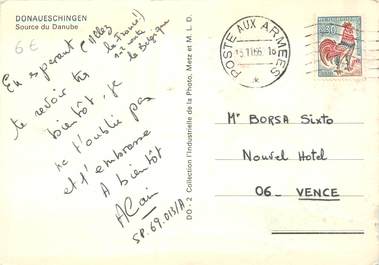 DONAUESCHINGEN
Source du Danube
6€
En esperant (Allez
la France!)
de Belgique
te revoir très
bientôt, je
ne t'oublie pas
et t'embrasse
A bientôt
Alain
SP.69.013/A
DO - 2 Collection l'Industrielle de la Photo, Metz et M. L. D.
POSTE AUX ARMEES
0,30
Mr BORSA Sixto
Nouvel Hotel
06_ VENCE